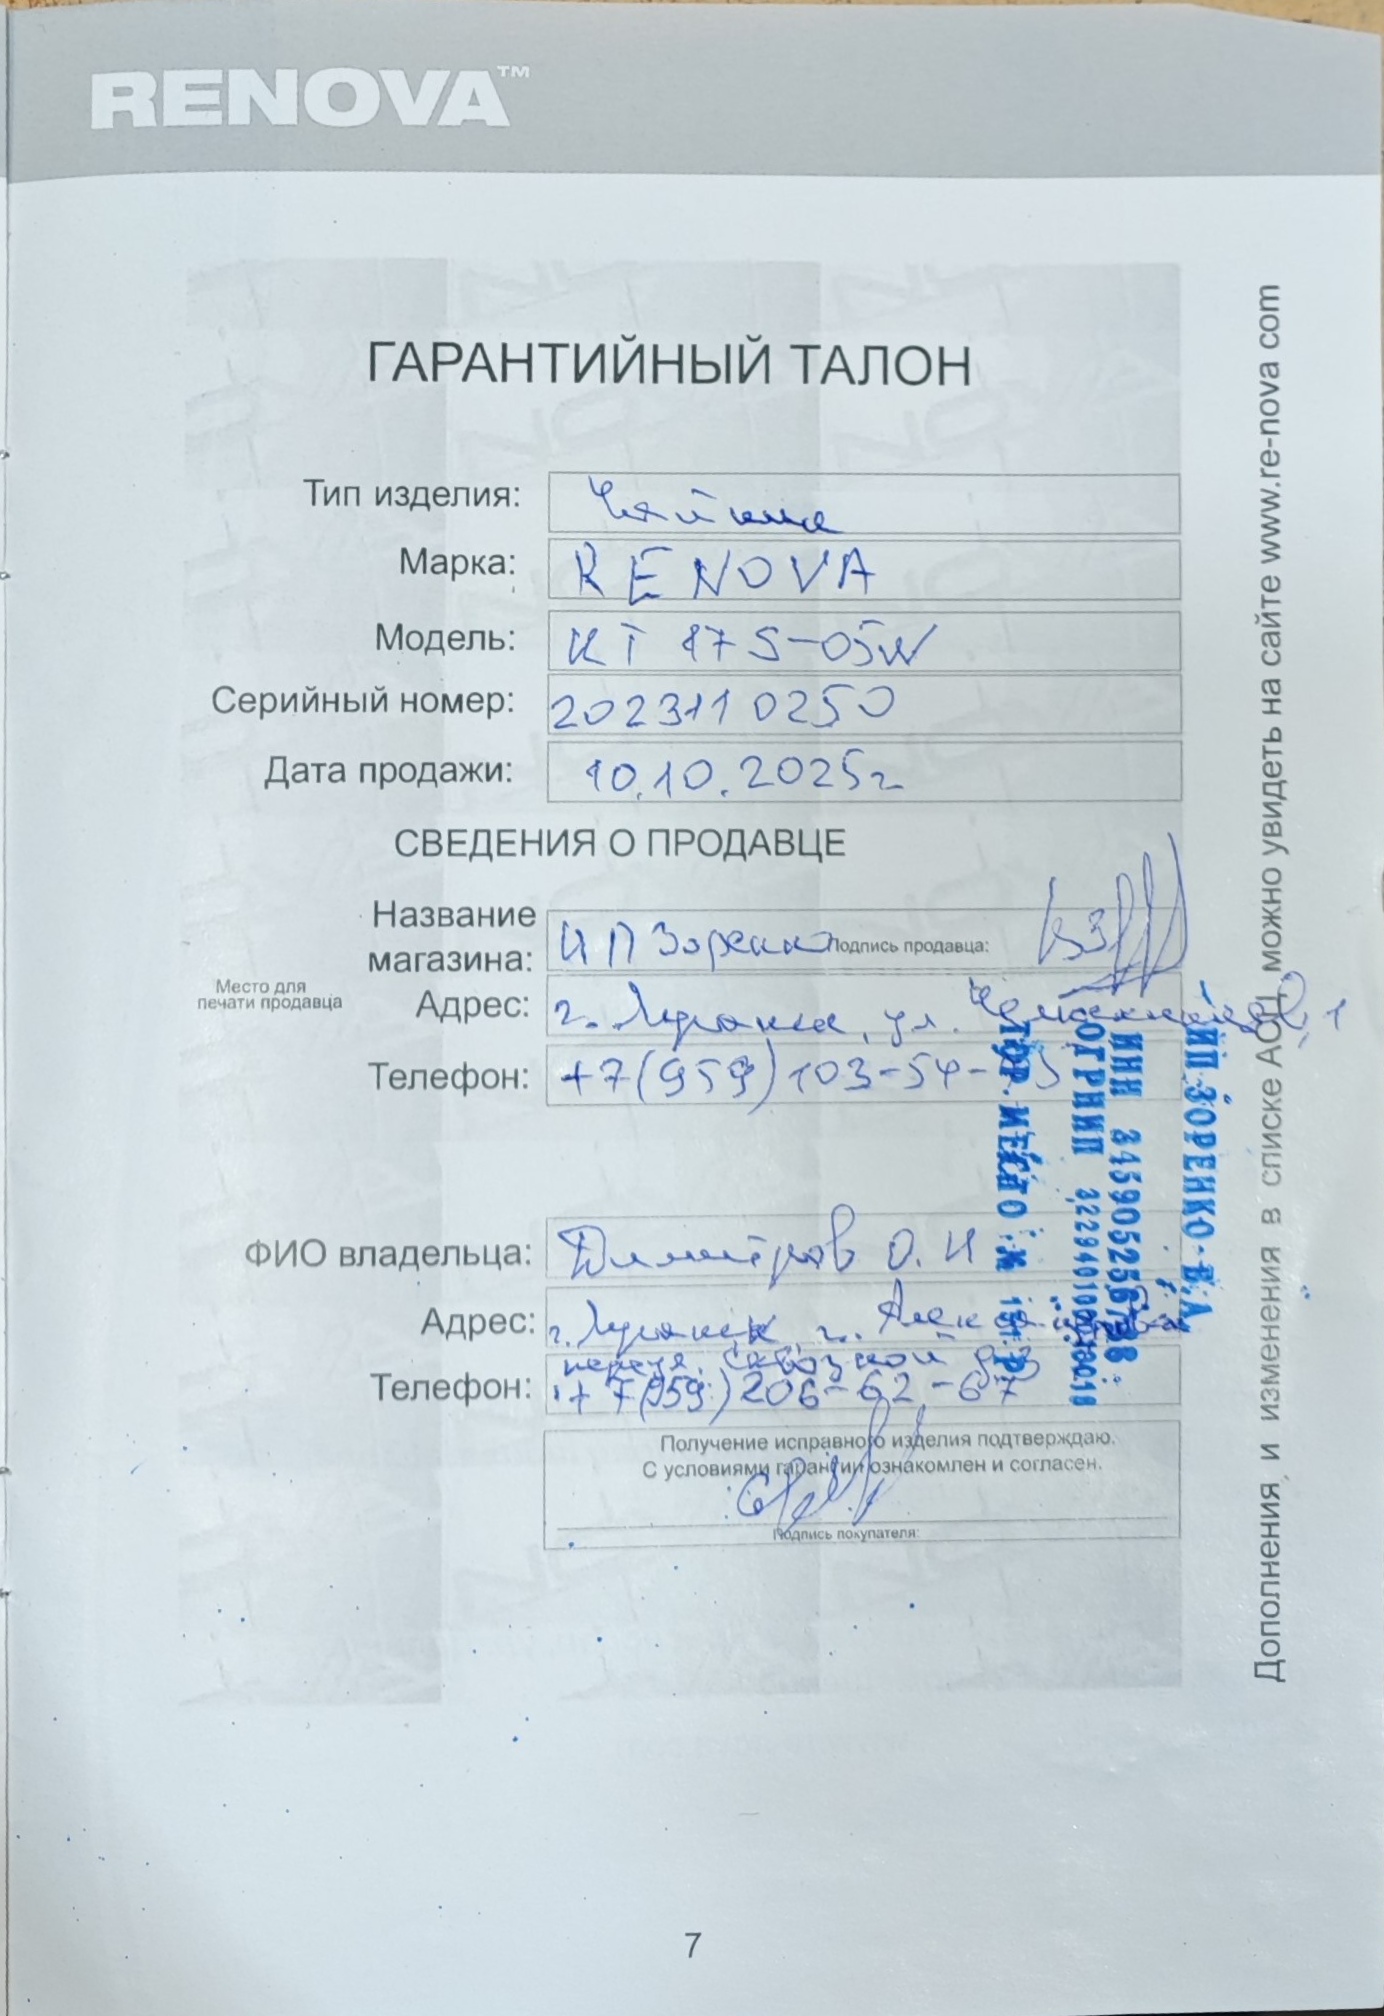 RENOVA™
ГАРАНТИЙНЫЙ ТАЛОН
Тип изделия: Чайник
Марка: RENOVA
Модель: KT 17 S-05W
Серийный номер: 2023110250
Дата продажи: 10.10.2025г
СВЕДЕНИЯ О ПРОДАВЦЕ
Название магазина: ИП Зоренко Подпись продавца:
Место для печати продавца
Адрес: г. Луганск, ул. 1
Телефон: +7(959)103-54-
ФИО владельца: Димитров О. И
Адрес: г. Луганск, г.
переул. д3
Телефон: +7(959)206-62-67
Получение исправного изделия подтверждаю.
С условиями гарантии ознакомлен и согласен.
Подпись покупателя:
ИП ЗОРЕНКО В.А
ИНН
ОГРНИП
ТОР. МЕСТО
Дополнения и изменения в списке АСЦ можно увидеть на сайте www.re-nova com
7